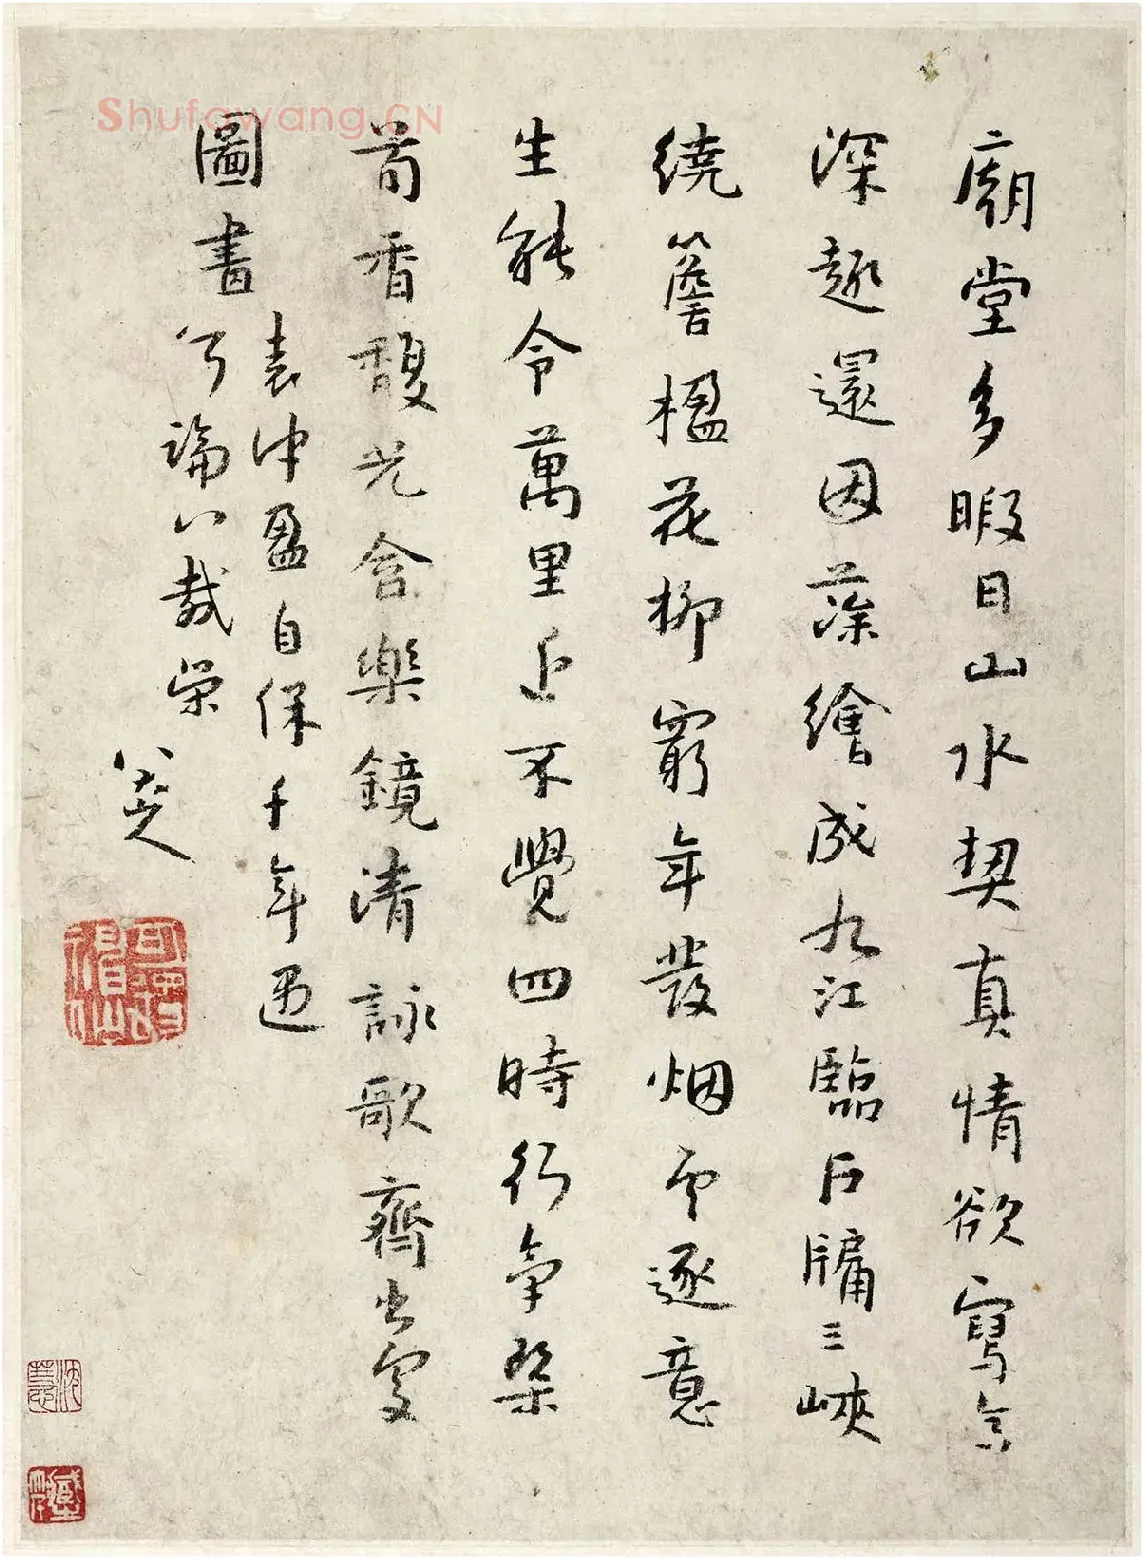 Shufawang.CN
廟堂多暇日山水契真情欲寫高
深趣還因藻繪成九江臨戶牖三峽
繞簷楹花柳窮年發烟雲逐意
生能令萬里近不覺四時行氣染
荀香馥光含樂鏡清詠歌齊出處
圖書表沖盈自保千年遇
何論八載榮
八大山人
可得神仙